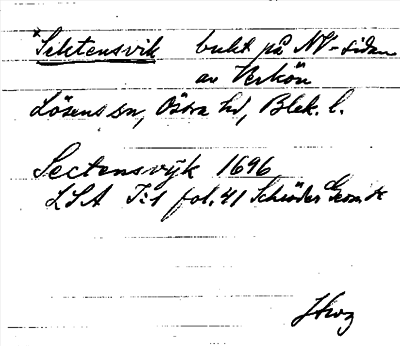 *Sektensvik bukt på NV-sidan
av Verkön
Lösens sn, Östra hd, Blek. l.
Sectensvijk 1696
LSA I:1 fol. 41 Schröder Geom. k